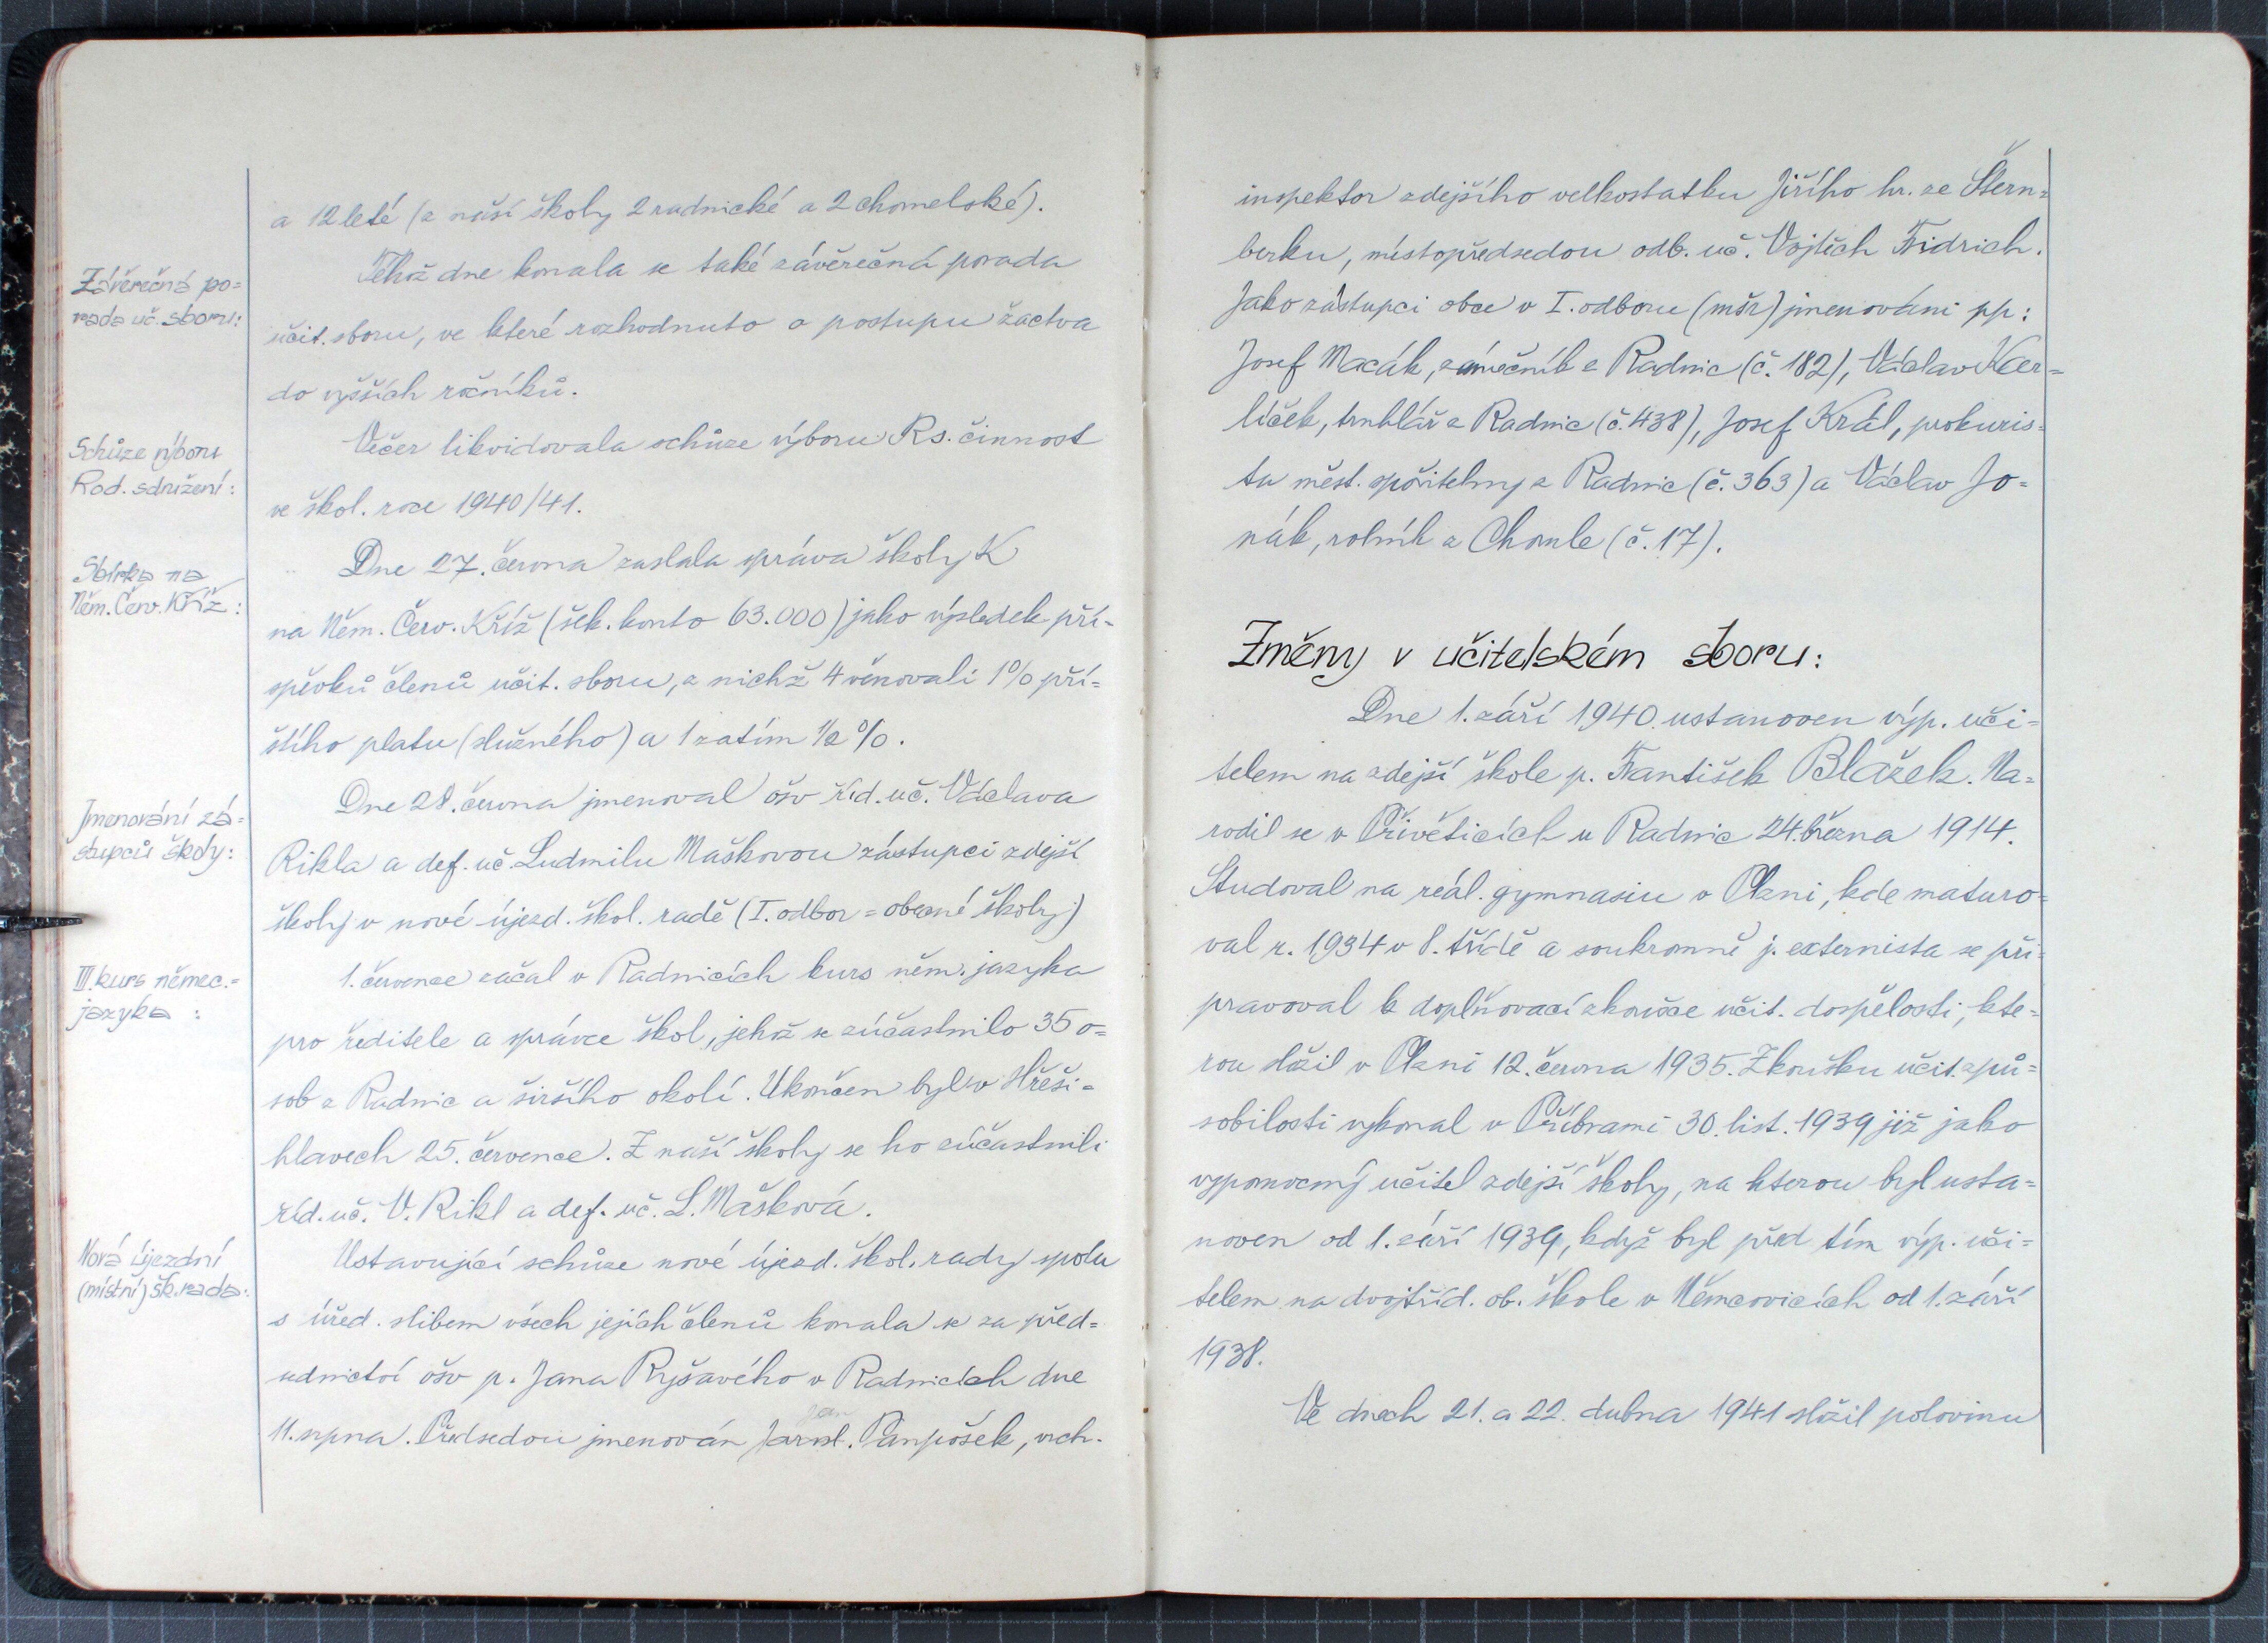 a 12 leté (z naší školy 2 radnické a 2 chomelské).
Závěrečná po=
rada uč. sboru:
Téhož dne konala se také závěrečná porada
učit. sboru, ve které rozhodnuto o postupu žactva
do vyšších ročníků.
Schůze výboru
Rod. sdružení:
Večer likvidovala schůze výboru Rs. činnost
ve škol. roce 1940/41.
Sbírka na
Něm. Červ. Kříž:
Dne 27. června zaslala správa školy K
na Něm. Červ. Kříž (šek. konto 63.000) jako výsledek pří-
spěvků členů učit. sboru, z nichž 4 věnovali 1% pří=
štího platu (služného) a 1 zatím 1/2 %.
Jmenování zá=
stupců školy:
Dne 28. června jmenoval ošv říd. uč. Václava
Rikla a def. uč. Ludmilu Maškovou zástupci zdejší
školy v nové újezd. škol. radě (I. odbor = obecné školy)
III. kurs němec.=
jazyka :
1. července začal v Radnicích kurs něm. jazyka
pro ředitele a správce škol, jehož se zúčastnilo 35 o=
sob z Radnic a širšího okolí. Ukončen byl v Hřeši=
hlavech 25. července. Z naší školy se ho zúčastnili
říd. uč. V. Rikl a def. uč. L. Mašková.
Nová újezdní
(místní) šk. rada:
Ustavující schůze nové újezd. škol. rady spolu
s úřed. slibem všech jejích členů konala se za před=
sednictví ošv p. Jana Ryšavého v Radnicích dne
Jan
11. srpna. Předsedou jmenován Jarosl. Panpošek, vrch.
inspektor zdejšího velkostatku Jiřího hr. ze Štern=
berku, místopředsedou odb. uč. Vojtěch Fridrich.
Jako zástupci obce v I. odboru (mšr) jmenováni pp:
Josef Macák, zámečník z Radnic (č. 182), Václav Ker=
líček, truhlář z Radnic (č. 438), Josef Král, prokuris=
ta měst. spořitelny z Radnic (č. 363) a Václav Jo=
nák, rolník z Chomle (č. 17).
Změny v učitelském sboru:
Dne 1. září 1940 ustanoven výp. uči=
telem na zdejší škole p. František Blažek. Na=
rodil se v Přívěticích u Radnic 24. března 1914.
Studoval na reál. gymnasiu v Plzni, kde maturo=
val r. 1934 v 8. třídě a soukromně j. externista se při=
pravoval k doplňovací zkoušce učit. dospělosti, kte=
rou složil v Plzni 12. června 1935. Zkoušku učit. způ=
sobilosti vykonal v Příbrami 30. list. 1939 již jako
výpomocný učitel zdejší školy, na kterou byl usta=
noven od 1. září 1939, když byl před tím výp. uči=
telem na dvojtříd. ob. škole v Němčovicích od 1. září
1938.
Ve dnech 21. a 22. dubna 1941 složil polovinu